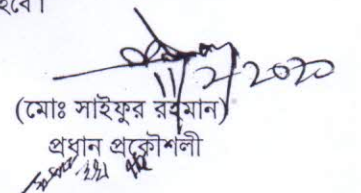 হবে।
11/2/2020
(মোঃ সাইফুর রহমান)
প্রধান প্রকৌশলী